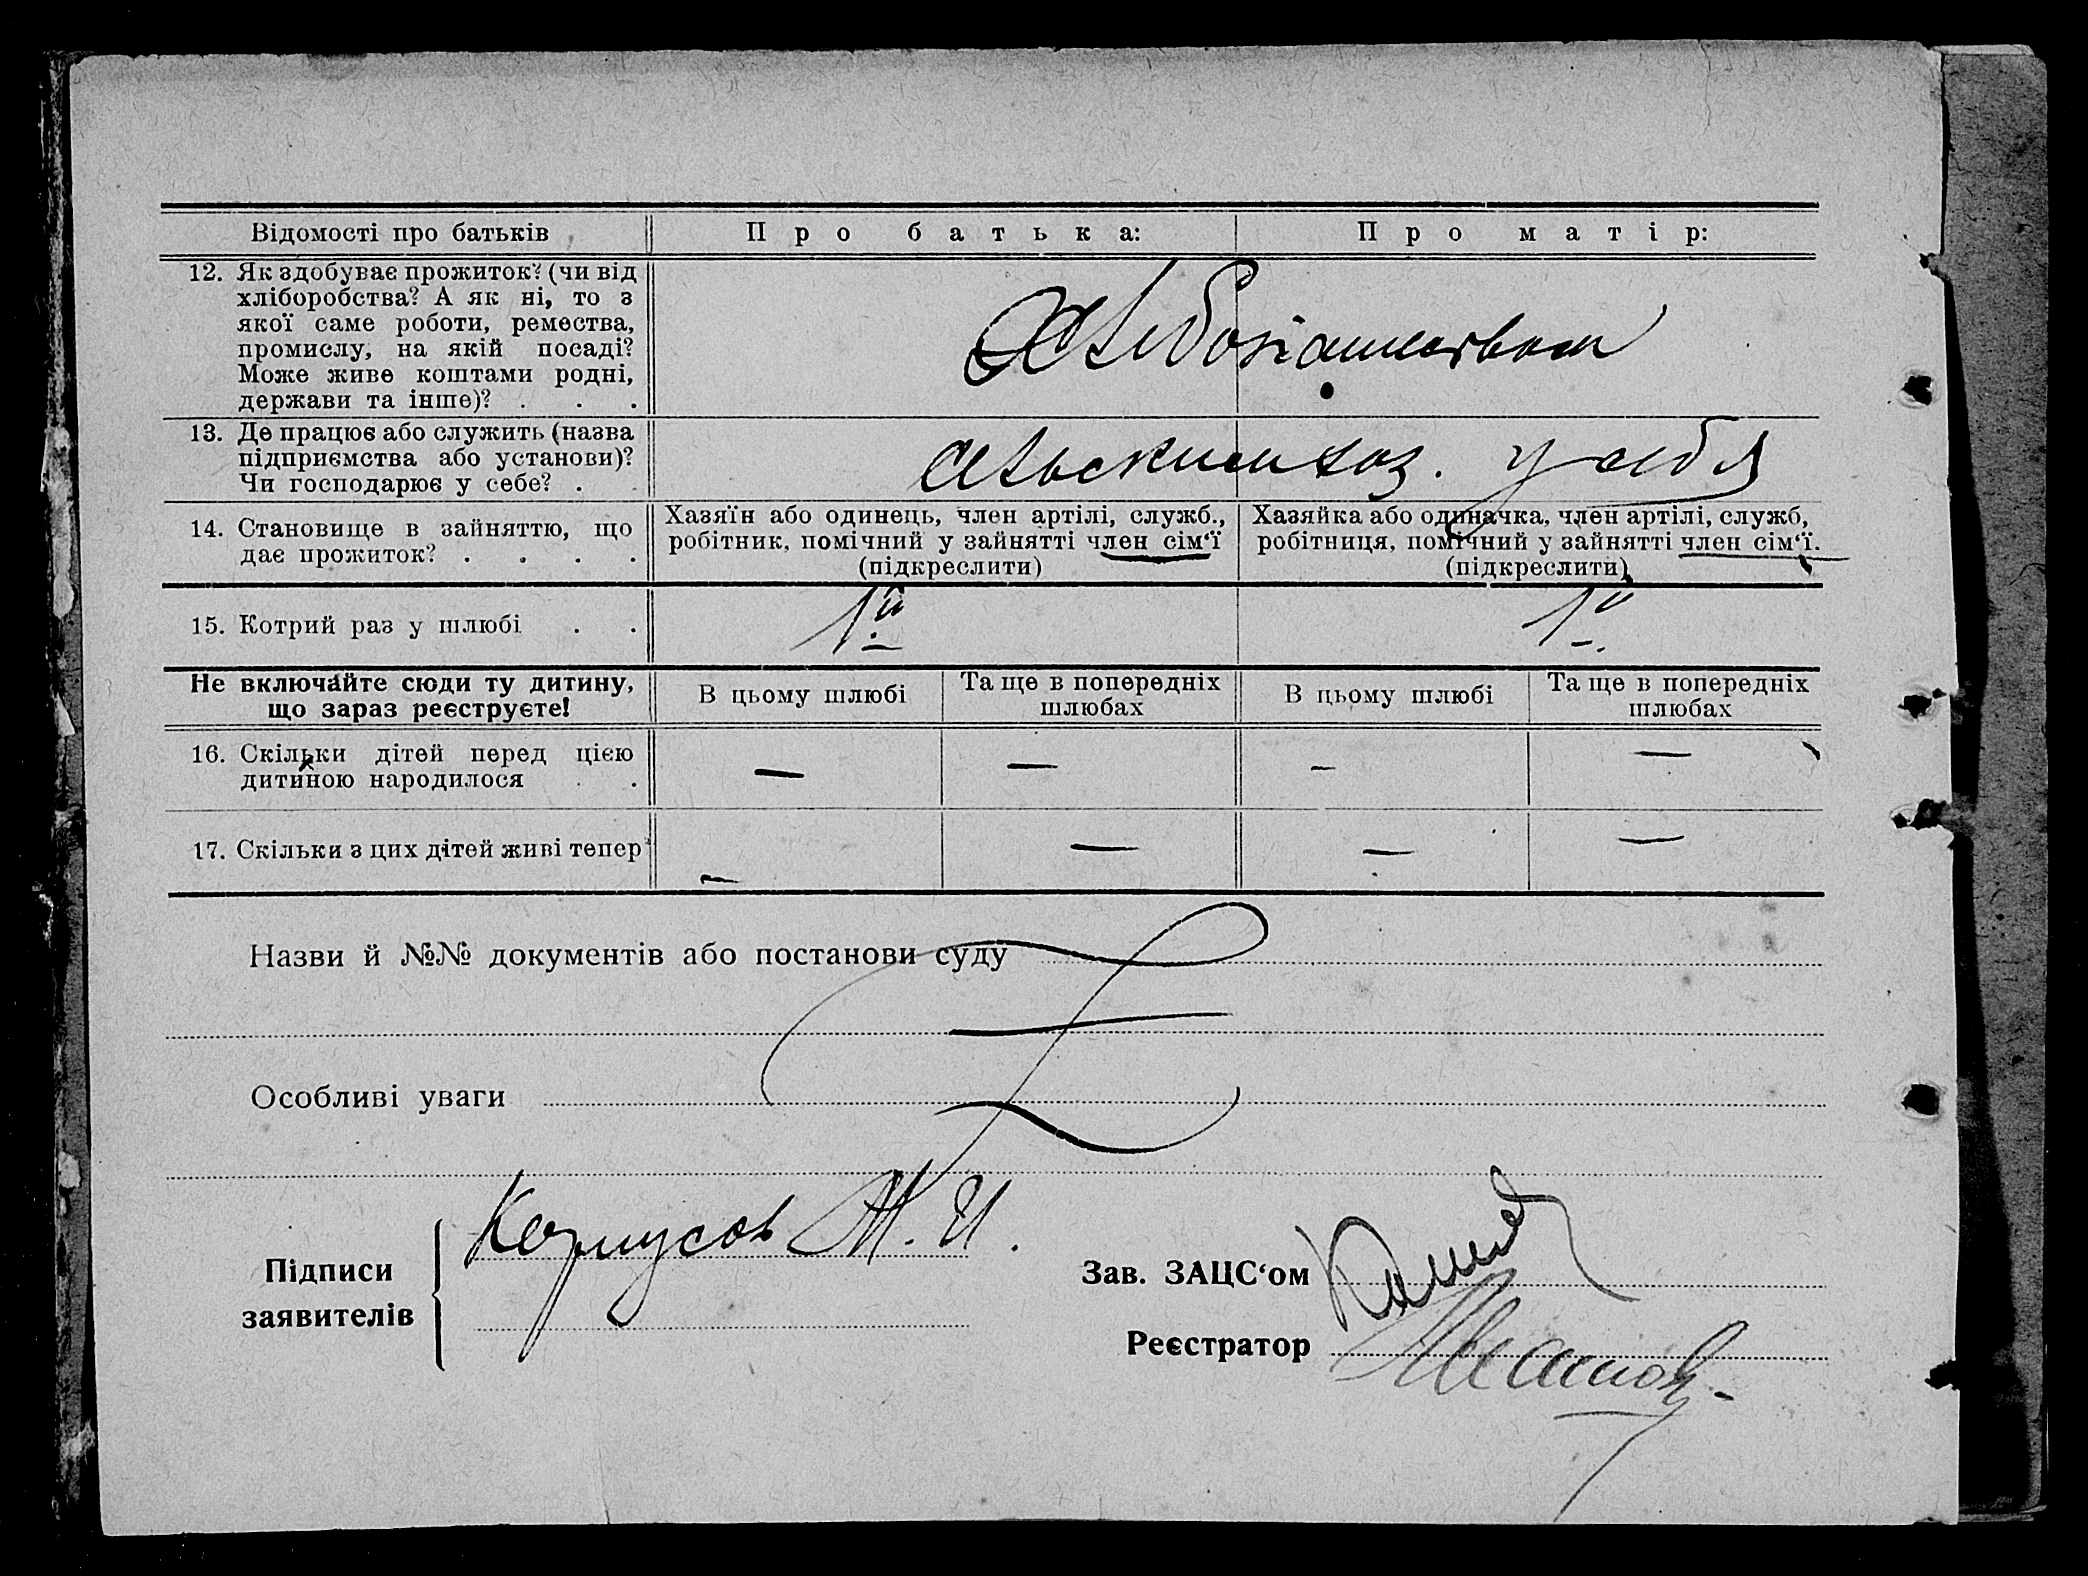 Відомості про батьків
Про батька:
Про матір:
12. Як здобуває прожиток? (чи від
хліборобства? А як ні, то з
якої саме роботи, ремества,
промислу, на якій посаді?
Може живе коштами родні,
держави та інше)? . . .
Хлебопашеством
13. Де працює або служить (назва
підприємства або установи)?
Чи господарює у себе? .
сельским хоз. у себя
14. Становище в зайняттю, що
дає прожиток? . . . .
Хазяїн або одинець, член артілі, служб.,
робітник, помічний у зайнятті член сім‘ї
(підкреслити)
Хазяйка або одиначка, член артілі, служб,
робітниця, помічний у зайнятті член сім‘ї.
(підкреслити)
15. Котрий раз у шлюбі . .
1й
1й
Не включайте сюди ту дитину,
що зараз реєструєте!
В цьому шлюбі
Та ще в попередніх
шлюбах
В цьому шлюбі
Та ще в попередніх
шлюбах
16. Скільки дітей перед цією
дитиною народилося . .
— — — —
17. Скільки з цих дітей живі тепер
— — — —
Назви й №№ документів або постанови суду
Особливі уваги
Підписи
заявителів
Ж. И.
Зав. ЗАЦС‘ом
Реєстратор